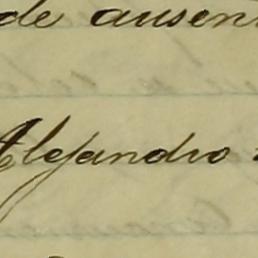 de ausen
Alejandro